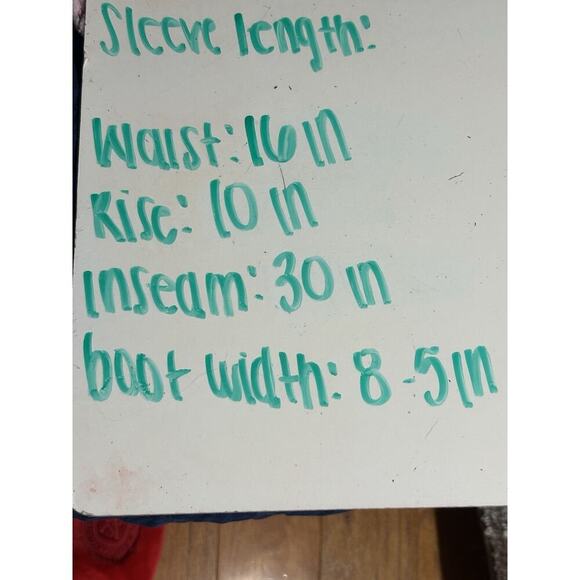 Sleeve length:
Waist: 16 in
Rise: 10 in
inseam: 30 in
boot width: 8.5 in